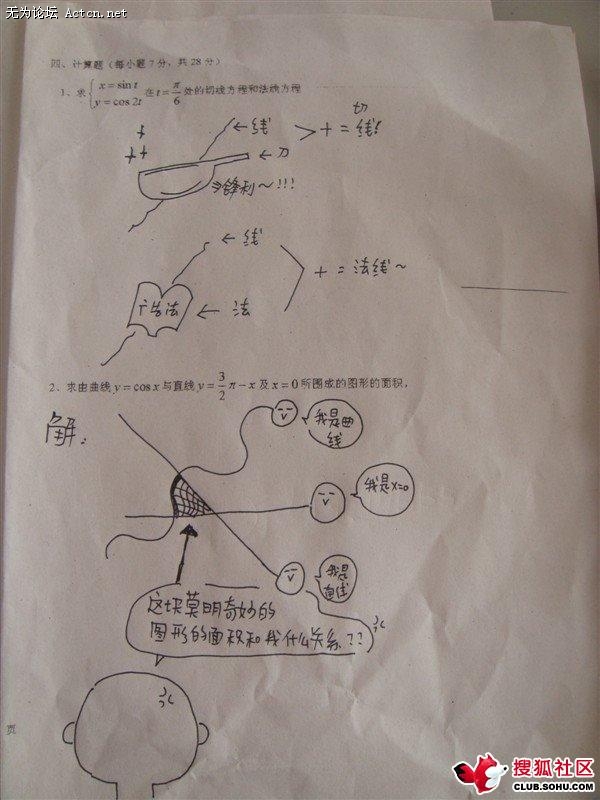 无为论坛 Actcn.net
四、计算题（每小题7分，共28分）
1、求{x=sin t y=cos 2t 在 t=π/6 处的切线方程和法线方程
← 线 > + = 切线!
← 刀
⇒锋利～!!!
← 线
+ = 法线～
广告法 ← 法
2、求由曲线 y=cos x 与直线 y=3/2 π-x 及 x=0 所围成的图形的面积，
解：
我是曲线
我是x=0
我是直线
这块莫明奇妙的
图形的面积和我什么关系??
页
搜狐社区
CLUB.SOHU.COM